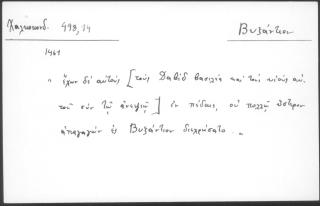 Χαλκοκονδ. 498,14
Βυζάντιον
1461
" ἔχων δὲ αὐτοὺς [τοὺς Δαβὶδ βασιλέα καὶ τοὺς υἱοὺς αὐ-
τοῦ σὺν τῷ ἀνεψιῷ] ἐν πέδαις, οὐ πολλῷ ὕστερον
ἀπαγαγὼν ἐς Βυζάντιον διεχρήσατο. "